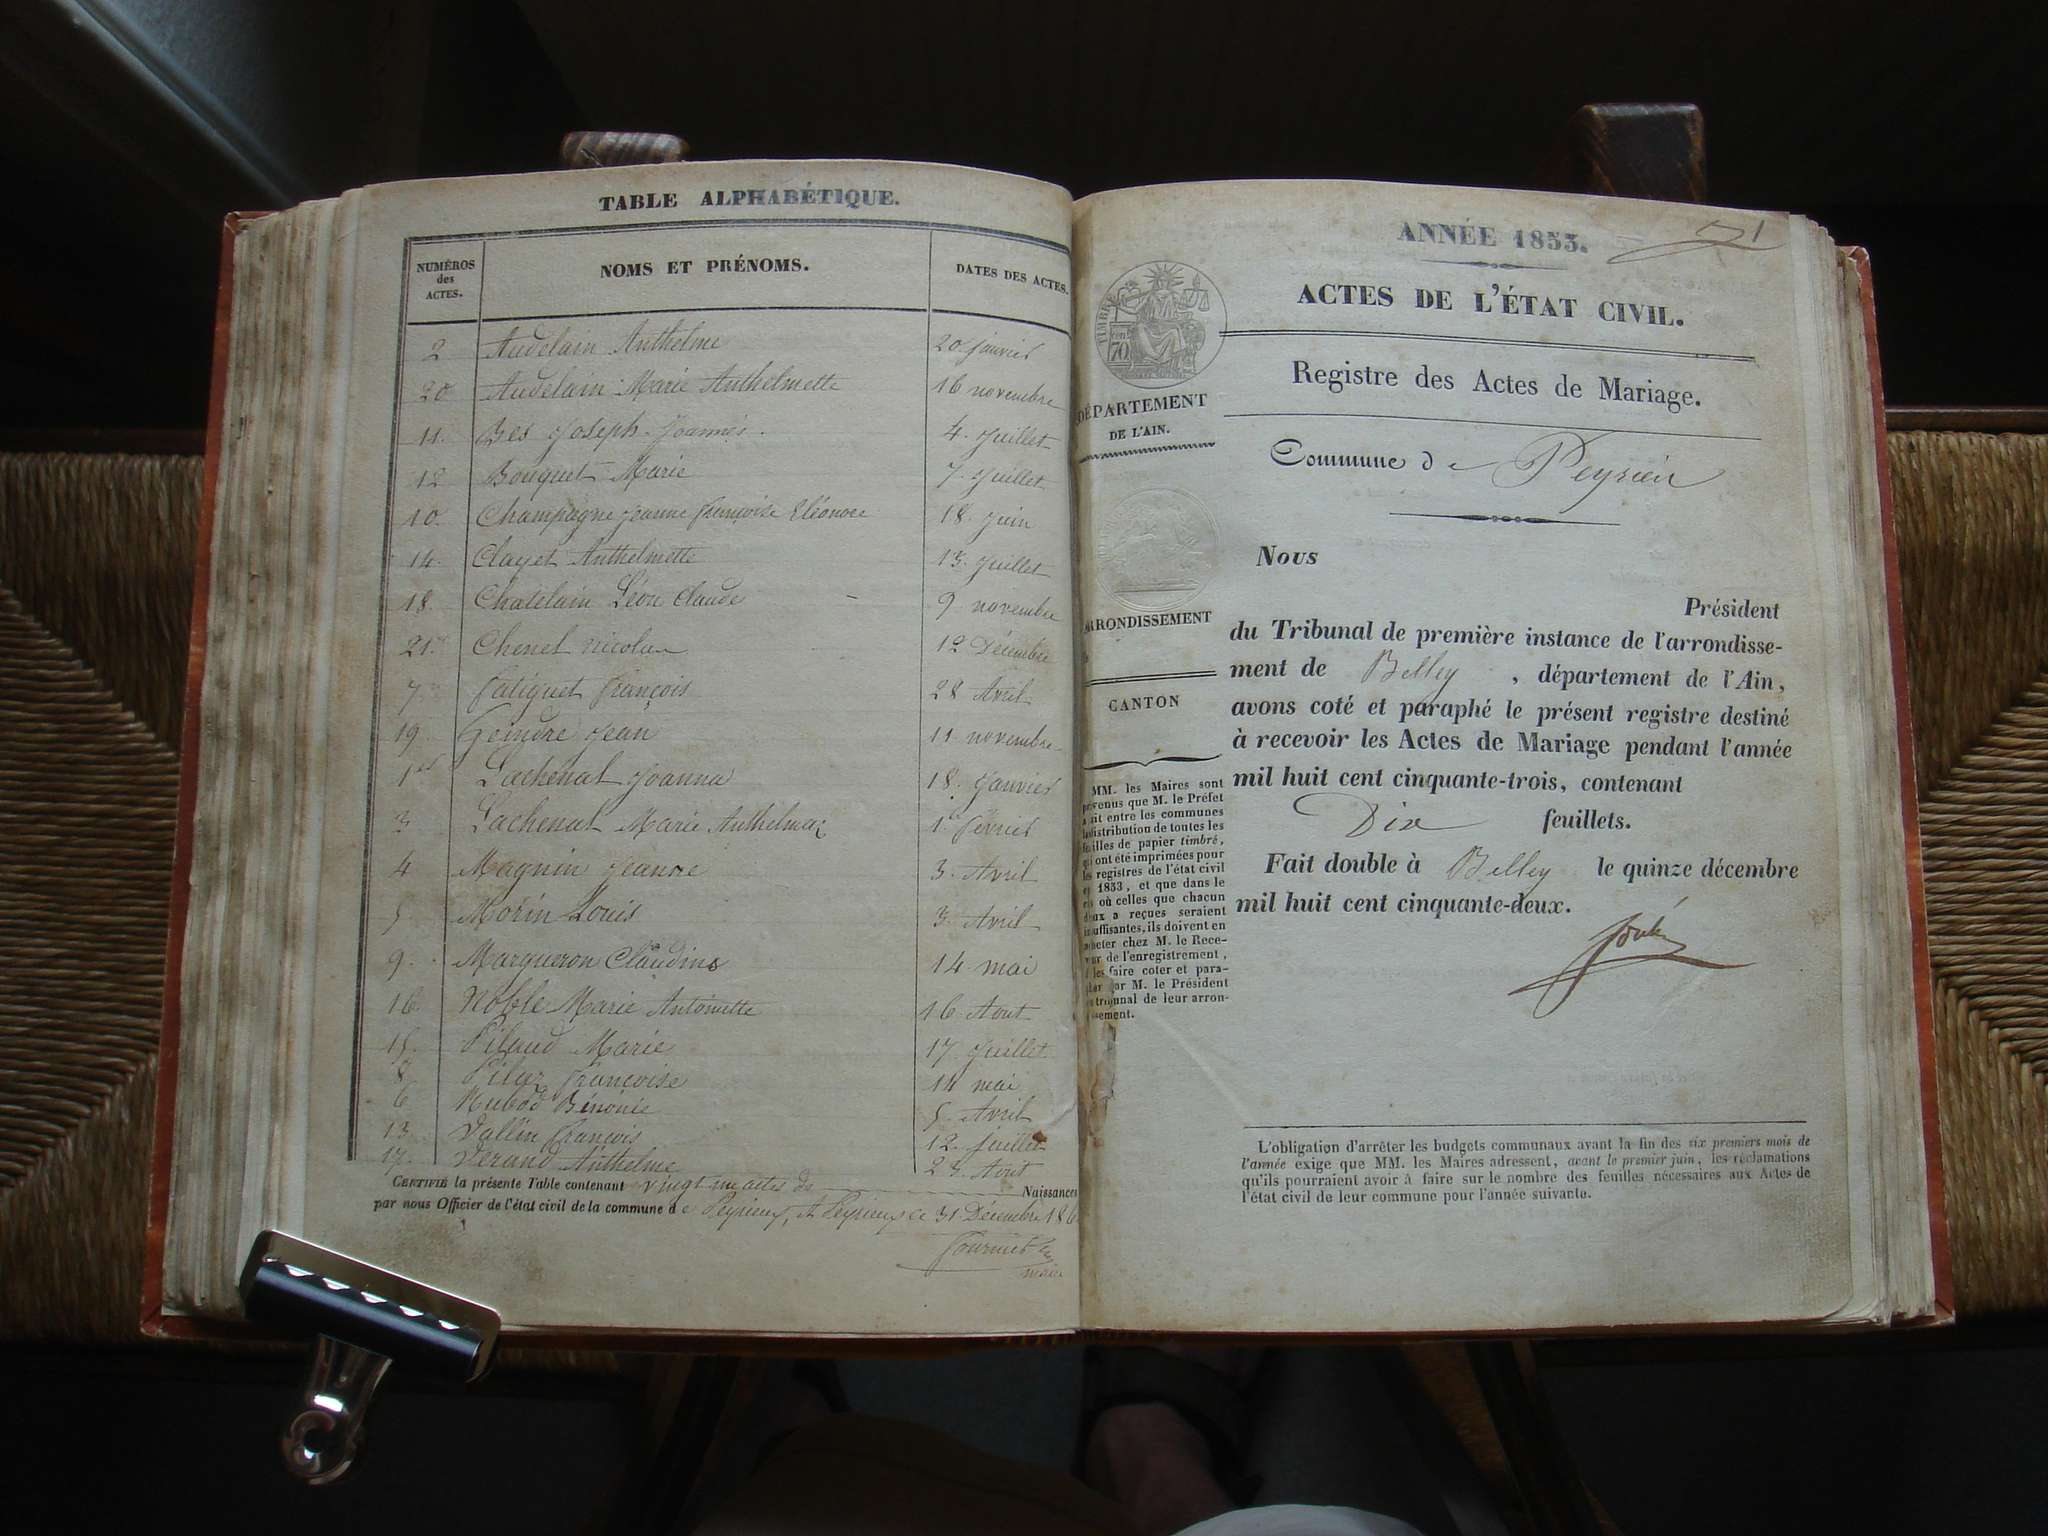 TABLE ALPHABÉTIQUE.
NUMÉROS des ACTES. NOMS ET PRÉNOMS. DATES DES ACTES.
2 Audelain Anthelme 20 janvier
20 Audelain Marie Anthelmette 16 novembre
11. Bes Joseph 4. Juillet
12 Bouquet Marie 7. Juillet
10. Champagne Jeanne françoise Eléonore 18. Juin
14. Clayet Anthelmette 13. Juillet
18. Chatelain Léon Claude 9 novembre
21. Chenet nicolas 12 Décembre
7 françois 28 Avril
19 Geindre Jean 11 novembre
1er Lachenat Joanna 18. Janvier
3 Lachenat Marie 1er février
4 Magnin Jeanne 3. Avril
5 Morin Louis 3. Avril
9. Margueron Claudine 14. mai
16. Noble Marie Antoinette 16. Aout
15. Pilaud Marie 17. Juillet
8 françoise 14 mai
6 Bénonie 5. Avril
13. Vallin françois 12. Juillet
17. Anthelme Aout
CERTIFIÉ la présente Table contenant vingt un actes de Naissances
par nous Officier de l'état civil de la commune de Peyrieux, A Peyrieux ce 31 Décembre 18
maire
1
ANNÉE 1853.
ACTES DE L'ÉTAT CIVIL.
TIMBRE
70
Registre des Actes de Mariage.
DÉPARTEMENT
DE L'AIN.
Commune de Peyrieu
Nous
Président
ARRONDISSEMENT
du Tribunal de première instance de l'arrondisse-
ment de Belley, département de l'Ain,
CANTON
avons coté et paraphé le présent registre destiné
à recevoir les Actes de Mariage pendant l'année
mil huit cent cinquante-trois, contenant
Dix feuillets.
Fait double à Belley le quinze décembre
mil huit cent cinquante-deux.
MM. les Maires sont
prévenus que M. le Préfet
fait entre les communes
la distribution de toutes les
feuilles de papier timbré,
qui ont été imprimées pour
les registres de l'état civil
en 1853, et que dans le
cas où celles que chacun
d'eux a reçues seraient
insuffisantes, ils doivent en
acheter chez M. le Rece-
veur de l'enregistrement,
et les faire coter et para-
pher par M. le Président
du tribunal de leur arron-
dissement.
L'obligation d'arrêter les budgets communaux avant la fin des six premiers mois de
l'année exige que MM. les Maires adressent, avant le premier juin, les réclamations
qu'ils pourraient avoir à faire sur le nombre des feuilles nécessaires aux Actes de
l'état civil de leur commune pour l'année suivante.